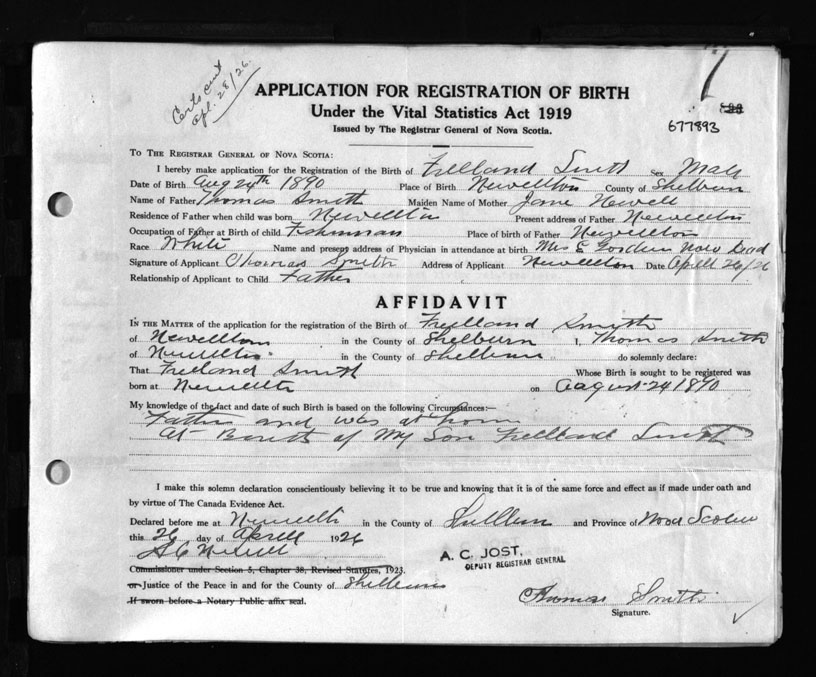 Certs sent
Apl. 28/26.
APPLICATION FOR REGISTRATION OF BIRTH
Under the Vital Statistics Act 1919
Issued by The Registrar General of Nova Scotia.
677893
TO THE REGISTRAR GENERAL OF NOVA SCOTIA:
I hereby make application for the Registration of the Birth of Frelland Smith Sex Male
Date of Birth Aug 24th 1890 Place of Birth Newellton County of Shelburn
Name of Father Thomas Smith Maiden Name of Mother Jane Newell
Residence of Father when child was born Newellton Present address of Father Newellton
Occupation of Father at Birth of child Fisherman Place of birth of Father Newellton
Race White Name and present address of Physician in attendance at birth Mrs E Gorden Now Dead
Signature of Applicant Thomas Smith Address of Applicant Newellton Date April 26/26
Relationship of Applicant to Child Father
AFFIDAVIT
IN THE MATTER of the application for the registration of the Birth of Freelland Smith
of Newellton in the County of Shelburn I, Thomas Smith
of Newellton in the County of Shelburn do solemnly declare:
That Freeland Smith Whose Birth is sought to be registered was
born at Newellton on August 24 1890
My knowledge of the fact and date of such Birth is based on the following Circumstances:—
Father and was at hom
At Birth of My Son Frelland Smith
I make this solemn declaration conscientiously believing it to be true and knowing that it is of the same force and effect as if made under oath and
by virtue of The Canada Evidence Act.
Declared before me at Newellton in the County of Shelburn and Province of Nova Scotia
this 26 day of Aprell 1926
A. C. JOST,
DEPUTY REGISTRAR GENERAL
Commissioner under Section 5, Chapter 38, Revised Statutes, 1923.
or Justice of the Peace in and for the County of Shelburn
If sworn before a Notary Public affix seal.
Thomas Smith
Signature.